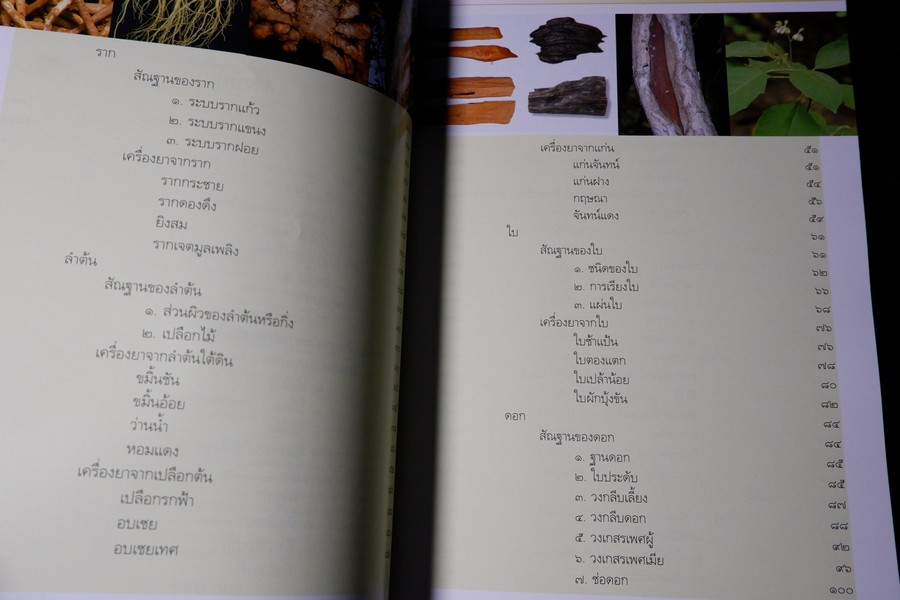 ราก
สัณฐานของราก
๑. ระบบรากแก้ว
๒. ระบบรากแขนง
๓. ระบบรากฝอย
เครื่องยาจากราก
รากกระชาย
รากดองดึง
ยิงสม
รากเจตมูลเพลิง
ลำต้น
สัณฐานของลำต้น
๑. ส่วนผิวของลำต้นหรือกิ่ง
๒. เปลือกไม้
เครื่องยาจากลำต้นใต้ดิน
ขมิ้นชัน
ขมิ้นอ้อย
ว่านน้ำ
หอมแดง
เครื่องยาจากเปลือกต้น
เปลือกรกฟ้า
อบเชย
อบเชยเทศ
เครื่องยาจากแก่น ๕๑
แก่นจันทน์ ๕๑
แก่นฝาง ๕๔
กฤษณา ๕๖
จันทน์แดง ๕๙
ใบ ๖๑
สัณฐานของใบ ๖๑
๑. ชนิดของใบ ๖๒
๒. การเรียงใบ ๖๖
๓. แผ่นใบ ๖๘
เครื่องยาจากใบ ๗๖
ใบช้าแป้น ๗๖
ใบตองแตก ๗๘
ใบเปล้าน้อย ๘๐
ใบผักบุ้งขัน ๘๒
ดอก ๘๔
สัณฐานของดอก ๘๔
๑. ฐานดอก ๘๕
๒. ใบประดับ ๘๕
๓. วงกลีบเลี้ยง ๘๗
๔. วงกลีบดอก ๘๘
๕. วงเกสรเพศผู้ ๙๒
๖. วงเกสรเพศเมีย ๙๖
๗. ช่อดอก ๑๐๐